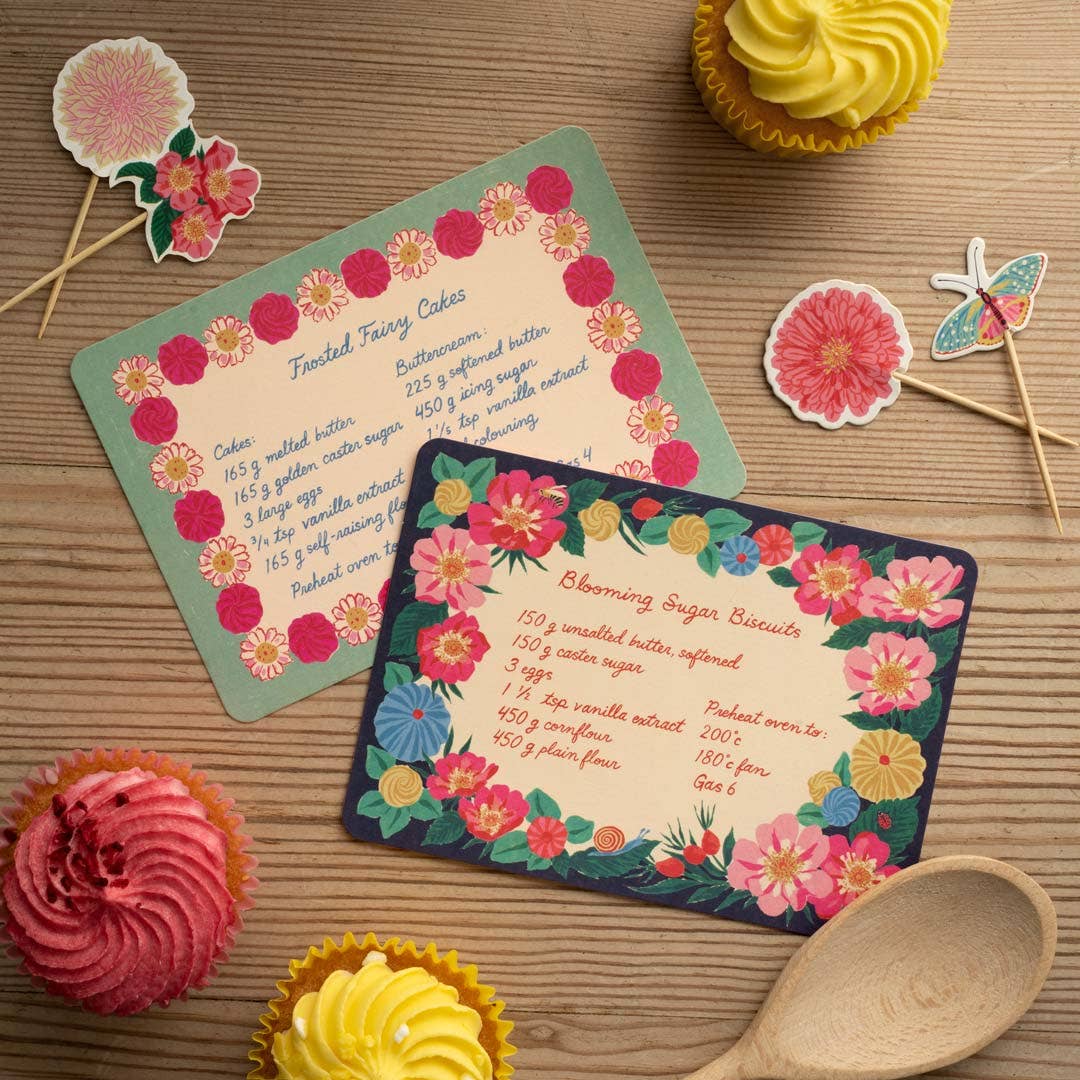 Frosted Fairy Cakes
Cakes:
165 g melted butter
165 g golden caster sugar
3 large eggs
¾ tsp vanilla extract
165 g self-raising
Preheat oven to
Buttercream:
225 g softened butter
450 g icing sugar
1 ½ tsp vanilla extract
colouring
4
Blooming Sugar Biscuits
150 g unsalted butter, softened
150 g caster sugar
3 eggs
1 ½ tsp vanilla extract
450 g cornflour
450 g plain flour
Preheat oven to:
200°c
180°c fan
Gas 6